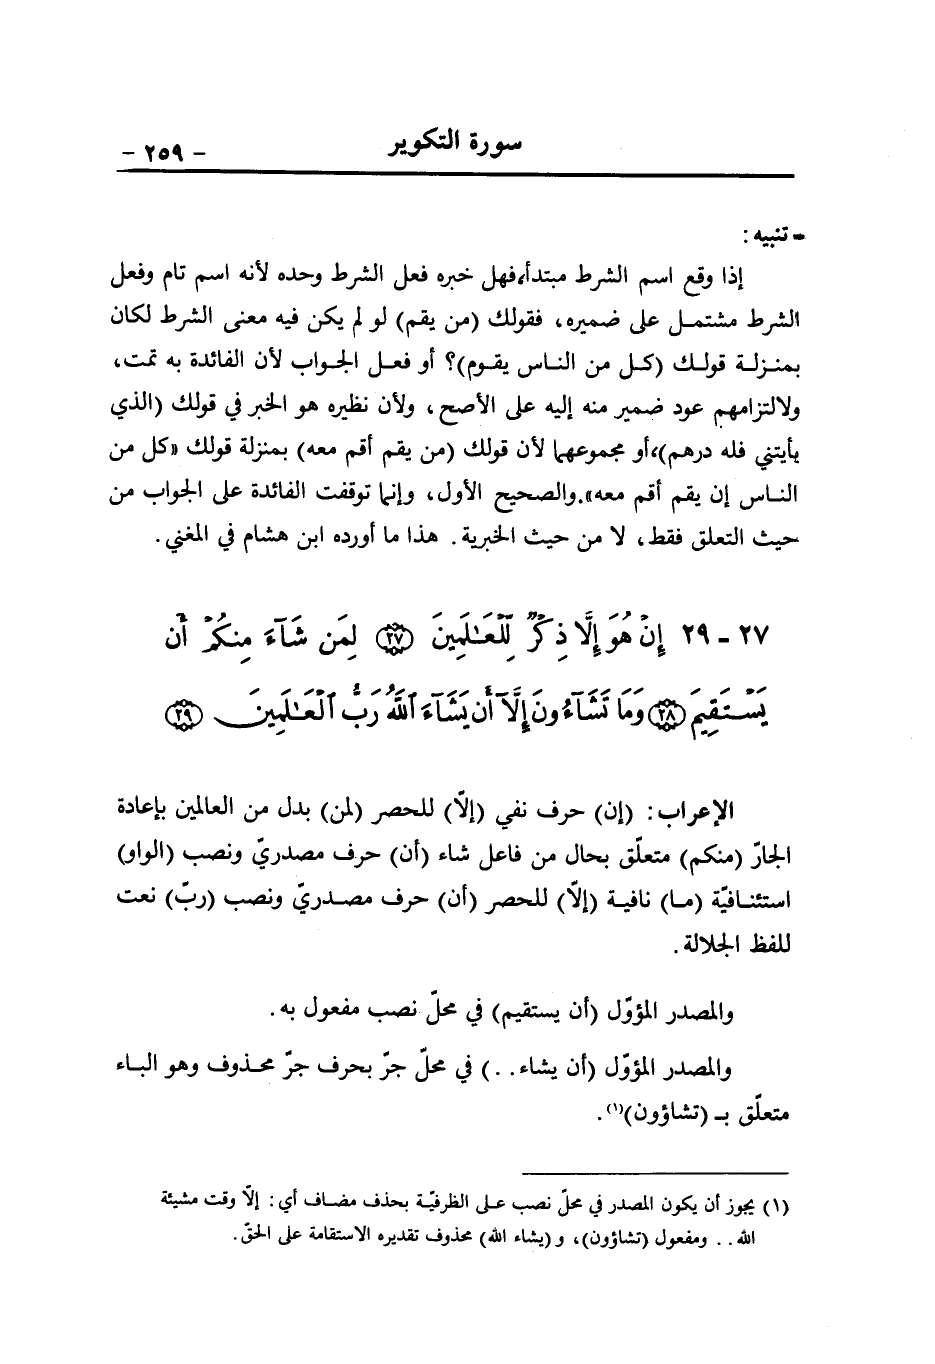 سورة التكوير
- ٢٥٩ -
- تنبيه :
إذا وقع اسم الشرط مبتدأ،فهل خبره فعل الشرط وحده لأنه اسم تام وفعل
الشرط مشتمل على ضميره، فقولك (من يقم) لو لم يكن فيه معنى الشرط لكان
بمنزلة قولك (كل من الناس يقوم)؟ أو فعل الجواب لأن الفائدة به تمت،
ولالتزامهم عود ضمير منه إليه على الأصح، ولأن نظيره هو الخبر في قولك (الذي
يأيتني فله درهم)،أو مجموعهما لأن قولك (من يقم أقم معه) بمنزلة قولك «كل من
الناس إن يقم أقم معه».والصحيح الأول، وإنما توقفت الفائدة على الجواب من
حيث التعلق فقط، لا من حيث الخبرية. هذا ما أورده ابن هشام في المغني.
٢٧ - ٢٩ إِنْ هُوَ إِلَّا ذِكْرٌ لِّلْعَـٰلَمِينَ ﴿٢٧﴾ لِمَن شَآءَ مِنكُمْ أَن
يَسْتَقِيمَ ﴿٢٨﴾ وَمَا تَشَآءُونَ إِلَّآ أَن يَشَآءَ ٱللَّهُ رَبُّ ٱلْعَـٰلَمِينَ ﴿٢٩﴾
الإعراب: (إن) حرف نفي (إلّا) للحصر (لمن) بدل من العالمين بإعادة
الجارّ (منكم) متعلّق بحال من فاعل شاء (أن) حرف مصدريّ ونصب (الواو)
استئنافيّة (ما) نافية (إلّا) للحصر (أن) حرف مصدريّ ونصب (ربّ) نعت
للفظ الجلالة.
والمصدر المؤوّل (أن يستقيم) في محلّ نصب مفعول به.
والمصدر المؤوّل (أن يشاء..) في محلّ جرّ بحرف جرّ محذوف وهو الباء
متعلّق بـ (تشاؤون)(١).
(١) يجوز أن يكون المصدر في محلّ نصب على الظرفيّة بحذف مضاف أي: إلّا وقت مشيئة
الله.. ومفعول (تشاؤون)، و (يشاء الله) محذوف تقديره الاستقامة على الحقّ.